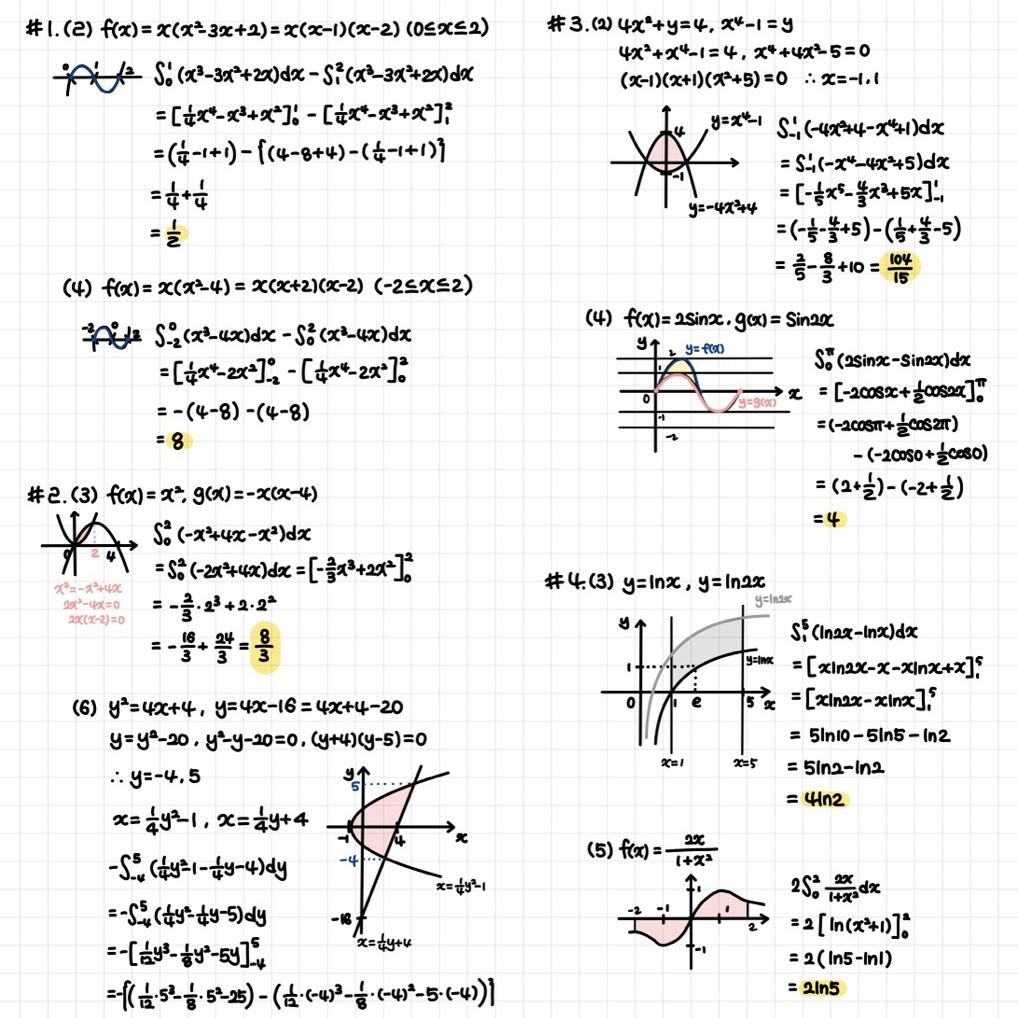 #1.(2) f(x)=x(x²-3x+2)=x(x-1)(x-2) (0≤x≤2)
0 1 2
∫₀¹(x³-3x²+2x)dx-∫₁²(x³-3x²+2x)dx
=[¼x⁴-x³+x²]₀¹-[¼x⁴-x³+x²]₁²
=(¼-1+1)-{(4-8+4)-(¼-1+1)}
=¼+¼
=½
(4) f(x)=x(x²-4)=x(x+2)(x-2) (-2≤x≤2)
-2 0 2
∫₋₂⁰(x³-4x)dx-∫₀²(x³-4x)dx
=[¼x⁴-2x²]₋₂⁰-[¼x⁴-2x²]₀²
=-(4-8)-(4-8)
=8
#2.(3) f(x)=x², g(x)=-x(x-4)
0 2 4
x²=-x²+4x
2x²-4x=0
2x(x-2)=0
∫₀²(-x²+4x-x²)dx
=∫₀²(-2x²+4x)dx=[-⅔x³+2x²]₀²
=-⅔·2³+2·2²
=-16/3+24/3=8/3
(6) y²=4x+4, y=4x-16=4x+4-20
y=y²-20, y²-y-20=0, (y+4)(y-5)=0
∴y=-4,5
x=¼y²-1, x=¼y+4
-∫₋₄⁵(¼y²-1-¼y-4)dy
=-∫₋₄⁵(¼y²-¼y-5)dy
=-[1/12y³-⅛y²-5y]₋₄⁵
=-{(1/12·5³-⅛·5²-25)-(1/12·(-4)³-⅛·(-4)²-5·(-4))}
y
5
-1 4 x
-4
x=¼y²-1
-16
x=¼y+4
#3.(2) 4x²+y=4, x⁴-1=y
4x²+x⁴-1=4, x⁴+4x²-5=0
(x-1)(x+1)(x²+5)=0 ∴x=-1,1
4 y=x⁴-1
-1
y=-4x²+4
∫₋₁¹(-4x²+4-x⁴+1)dx
=∫₋₁¹(-x⁴-4x²+5)dx
=[-⅕x⁵-4/3x³+5x]₋₁¹
=(-⅕-4/3+5)-(⅕+4/3-5)
=⅖-8/3+10=104/15
(4) f(x)=2sinx, g(x)=sin2x
y 2 y=f(x)
1
0 x
y=g(x)
-1
-2
∫₀^π(2sinx-sin2x)dx
=[-2cosx+½cos2x]₀^π
=(-2cosπ+½cos2π)
-(-2cos0+½cos0)
=(2+½)-(-2+½)
=4
#4.(3) y=lnx, y=ln2x
y=ln2x
y
1 y=lnx
0 1 e 5 x
x=1 x=5
∫₁⁵(ln2x-lnx)dx
=[xln2x-x-xlnx+x]₁⁵
=[xln2x-xlnx]₁⁵
=5ln10-5ln5-ln2
=5ln2-ln2
=4ln2
(5) f(x)=2x/(1+x²)
1
-2 -1 1 2
-1
2∫₀² 2x/(1+x²)dx
=2[ln(x²+1)]₀²
=2(ln5-ln1)
=2ln5